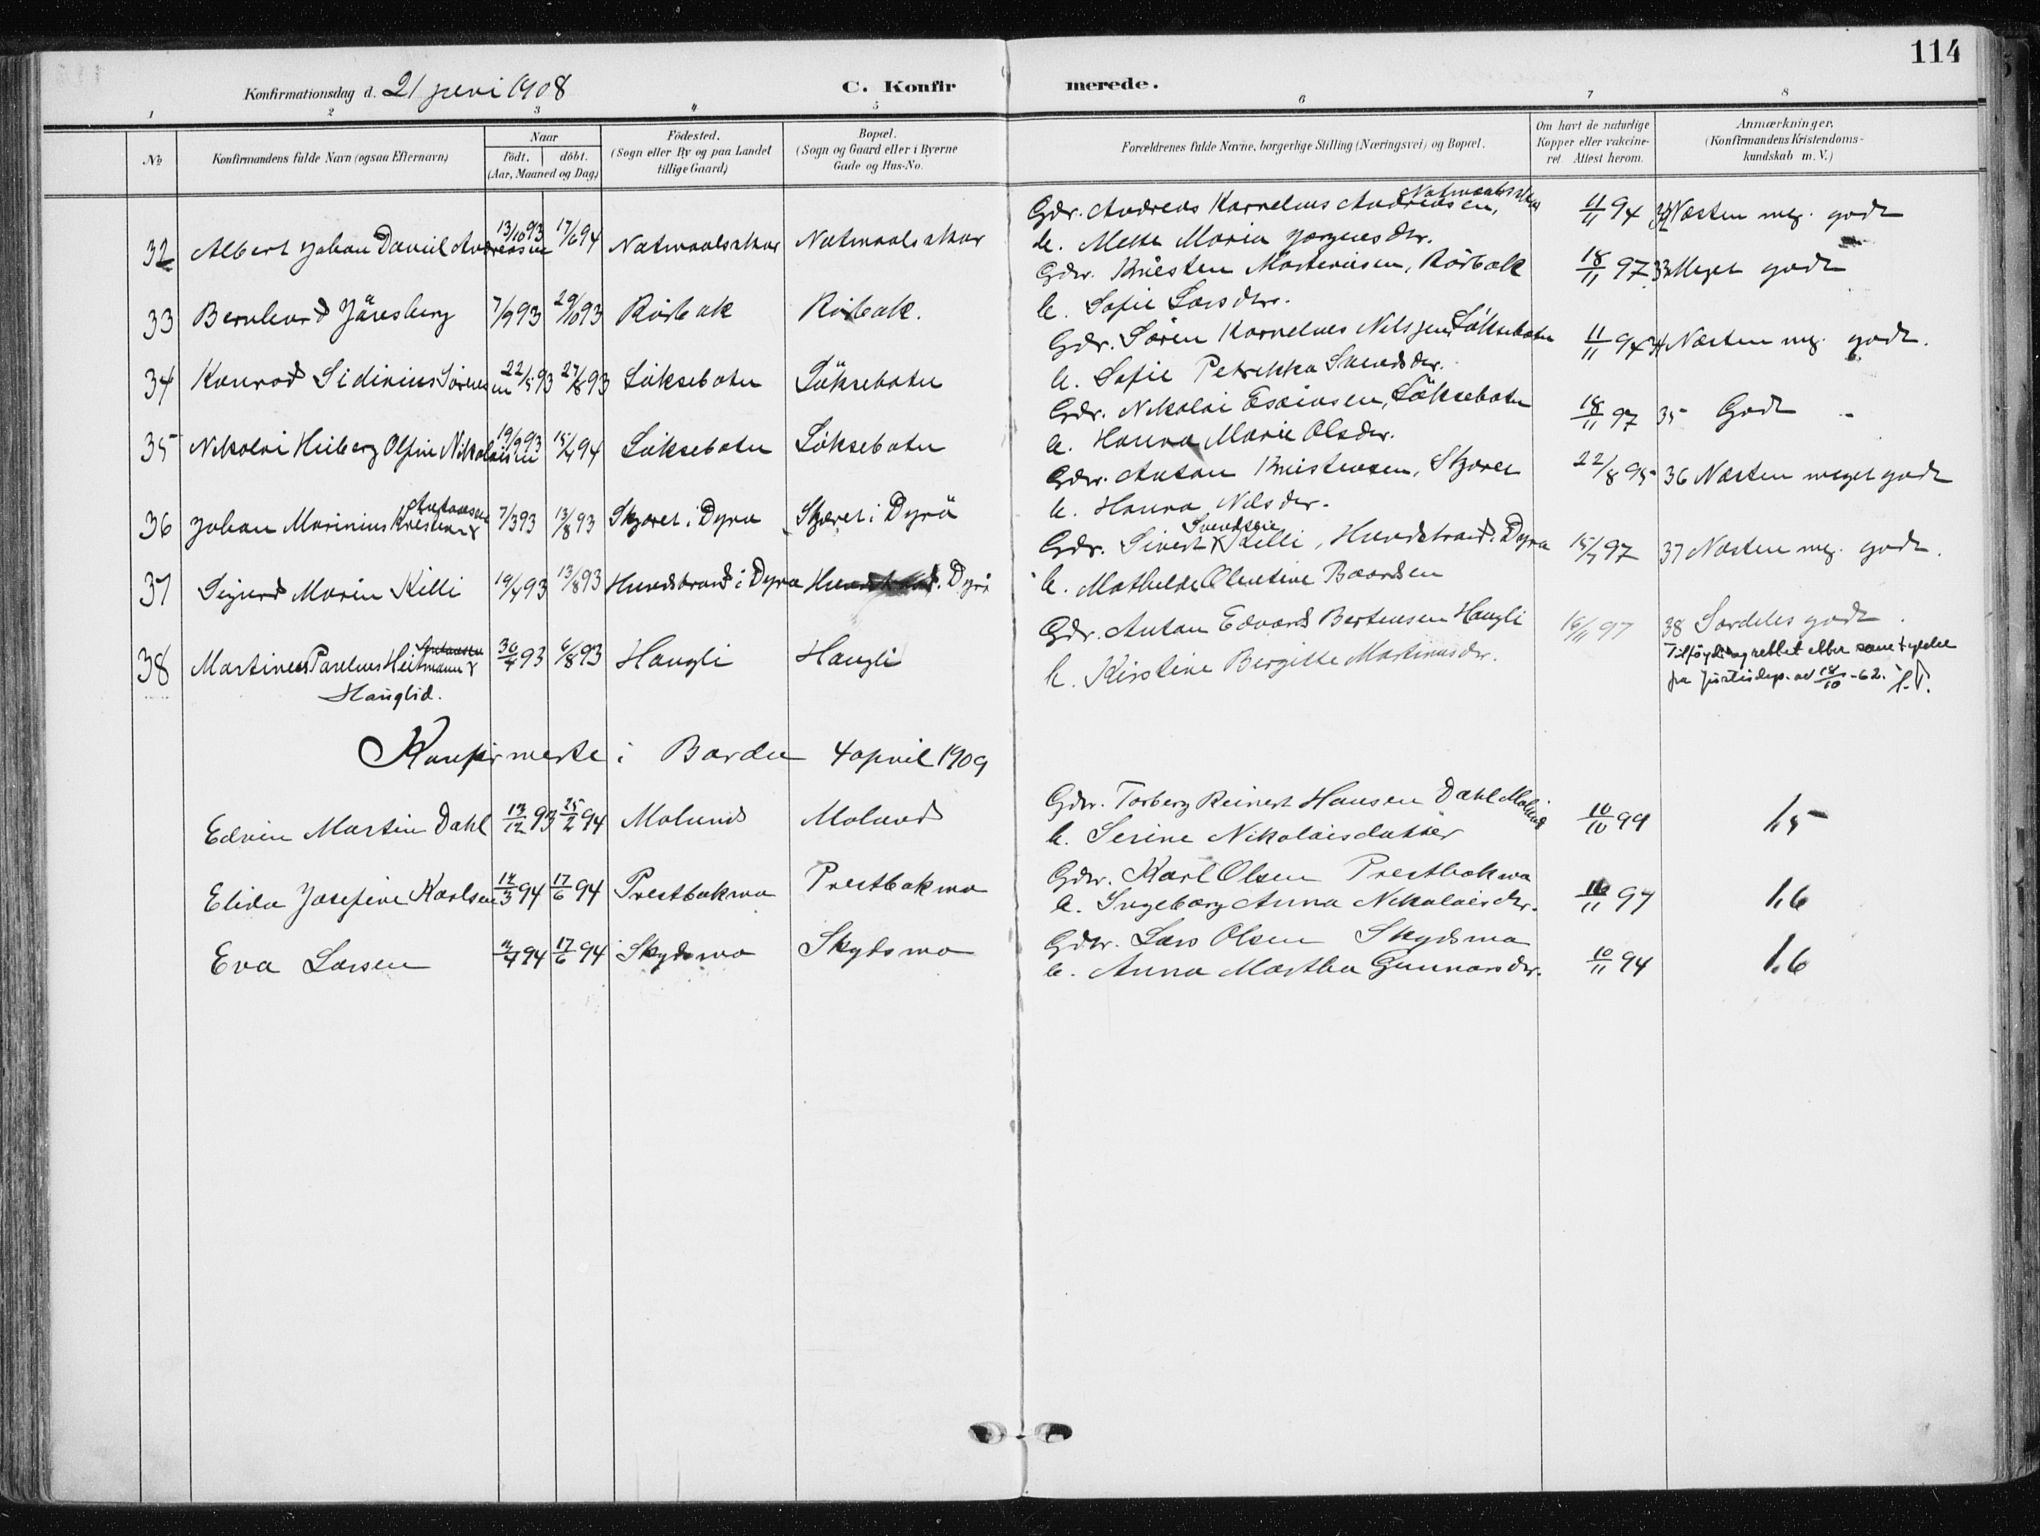 114
Konfirmationsdag d. 21 juni 1908 C. Konfirmerede.
1 2 3 4 5 6 7 8
No Konfirmandens fulde Navn (ogsaa Efternavn) Naar födt. döbt. (Aar, Maaned og Dag) Födested. (Sogn eller By og paa Landet tillige Gaard) Bopæl. (Sogn og Gaard eller i Byerne Gade og Hus-No. Forældrenes fulde Navne, borgerlige Stilling (Næringsvei) og Bopæl. Om havt de naturlige Kopper eller vakcineret. Attest herom. Anmærkninger. (Konfirmandens Kristendomskundskab m. V.)
32 Albert Johan Daniel Andreassen 13/10 93 17/6 94 Natmaalsakar Natmaalsakar Gdr. Andreas Kornelius Andreasen, Natmaalsakar 11/11 94 32 Næsten meg. godt
h. Mette Maria Jørgensdtr.
33 Bernhard Järnsberg 7/9 93 29/10 93 Rörbak Rörbak. Gdr. Kristen Martenisen, Rörbak 18/11 97 33 Meget godt
h. Sofie Larsdtr.
34 Konrad Sidinius Sörensen 22/5 93 27/8 93 Löksebotn Löksebotn Gdr. Sören Kornelius Nilsen Löksebotn 11/11 94 34 Næsten meg. godt.
h. Sofie Petrikka Smedsdtr.
35 Nikolai Heiberg Olfin Nikolaisen 19/9 93 15/4 94 Löksebotn Löksebotn Gdr. Nikolai Esaiasen, Löksebotn 18/11 97 35 Godt
h. Hanna Marie Olsdtr.
36 Johan Marinius Kristian Antonsen 7/3 93 13/8 93 Skjæret i Dyrö Skjæret i Dyrö Gdr. Anton Kristensen, Skjæret 22/8 95 36 Næsten meget godt
h. Hanna Nilsdtr.
37 Sigurd Marin Killi 19/4 93 13/8 93 Hundstrand i Dyrö Hundstrand. Dyrö Gdr. Sivert Svendsen Killi, Hundstrand. Dyrö 15/7 97 37 Næsten meg. godt.
h. Mathilde Olentine Baardsen
38 Martines Paulus Heitmann Antonsen 30/4 93 6/8 93 Haugli Haugli Gdr. Anton Edvard Bertensen Haugli 16/11 97 38 Særdeles godt
Hauglid. h. Kirstine Bergitte Martinusdtr. Tilföyd og rettet etter samtykke fra Justisdep. av 18/10-62.
Konfirmerte i Bardu 4 april 1909
Edvin Martin Dahl 13/12 93 25/2 94 Molund Molund Gdr. Torberg Reinert Hansen Dahl Molund 10/10 99 1,5
h. Serine Nikolaisdatter
Elida Josefine Karlsen 12/3 94 17/6 94 Prestbakmo Prestbakmo Gdr. Karl Olsen Prestbakmo 10/11 97 1,6
h. Ingeborg Anna Nikolaisdtr.
Eva Larsen 94 17/6 94 Skydsmo Skydsmo Gdr. Lars Olsen Skydsmo 10/11 94 1,6
h. Anna Martha Gunnarsdtr.